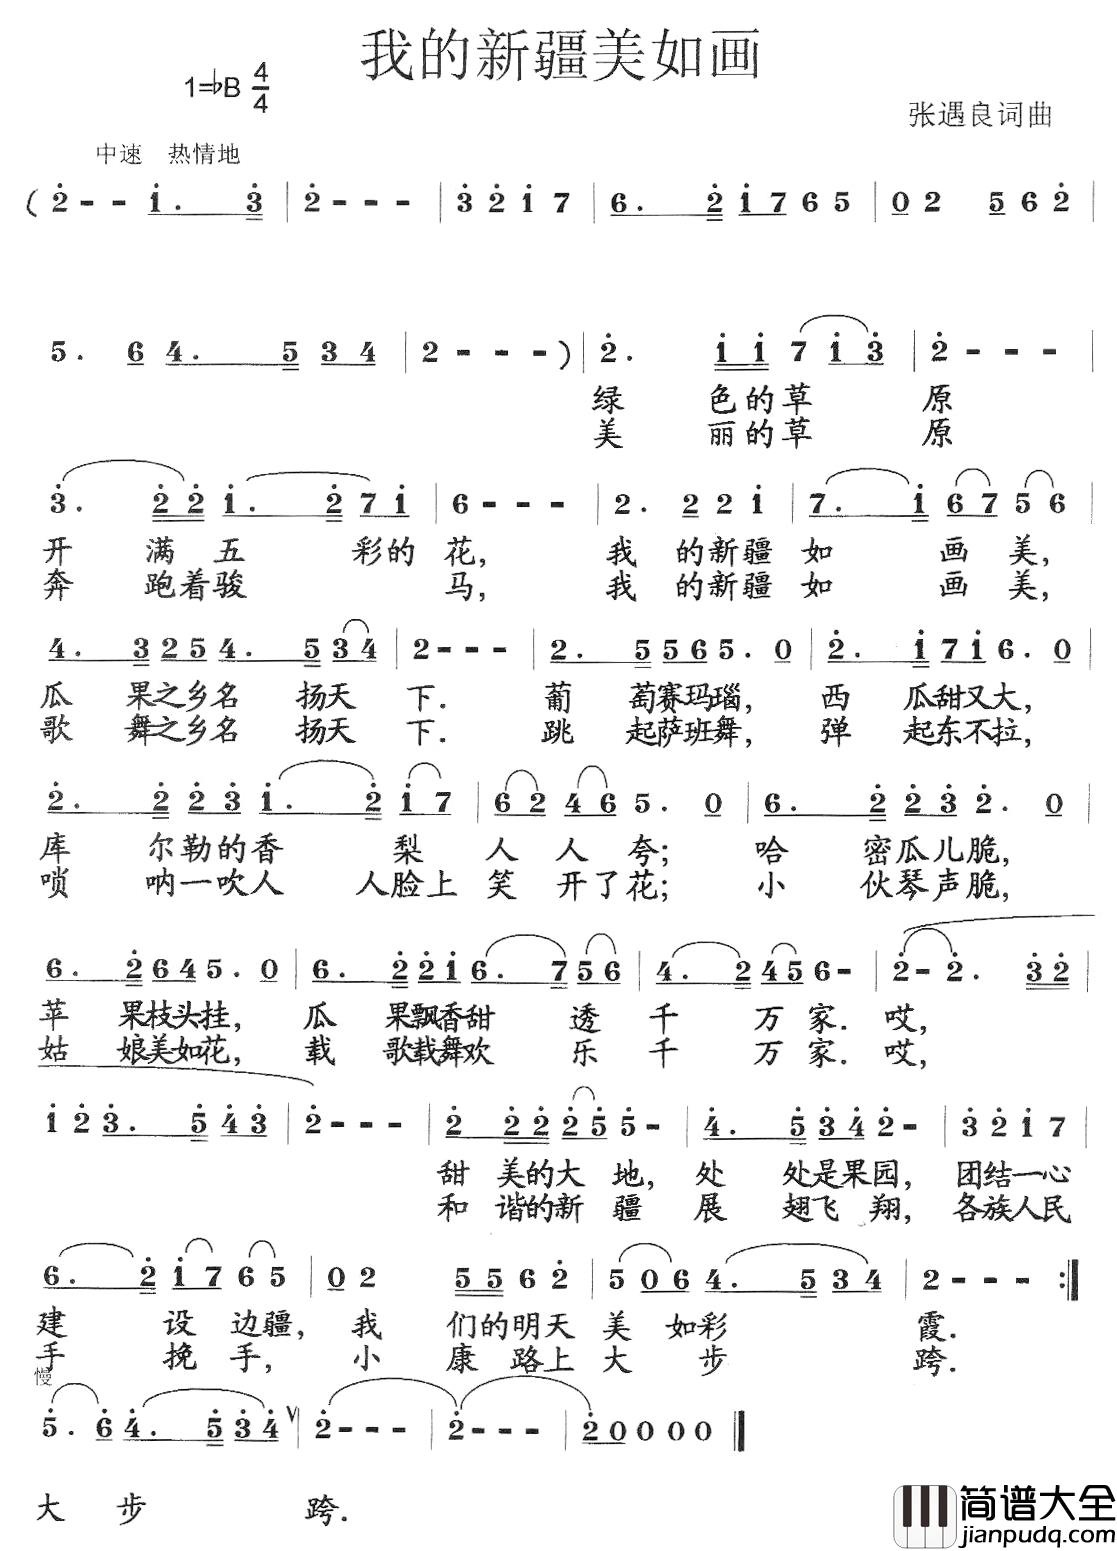 我的新疆美如画
1=♭B 4/4
张遇良词曲
中速 热情地
( 2 - - 1. 3 | 2 - - - | 3 2 1 7 | 6. 2 1 7 6 5 | 0 2 5 6 2 |
5. 6 4. 5 3 4 | 2 - - - ) | 2. 1 1 7 1 3 | 2 - - - |
绿 色的草 原
美 丽的草 原
3. 2 2 1. 2 7 1 | 6 - - - | 2. 2 2 1 | 7. 1 6 7 5 6 |
开 满 五 彩的 花, 我 的新疆 如 画 美,
奔 跑着骏 马, 我 的新疆 如 画 美,
4. 3 2 5 4. 5 3 4 | 2 - - - | 2. 5 5 6 5. 0 | 2. 1 7 1 6. 0 |
瓜 果之乡名 扬天 下. 葡 萄赛玛瑙, 西 瓜甜又大,
歌 舞之乡名 扬天 下. 跳 起萨班舞, 弹 起东不拉,
2. 2 2 3 1. 2 1 7 | 6 2 4 6 5. 0 | 6. 2 2 3 2. 0 |
库 尔勒的香 梨 人 人 夸; 哈 密瓜儿脆,
唢 呐一吹人 人脸上 笑 开了花; 小 伙琴声脆,
6. 2 6 4 5. 0 | 6. 2 2 1 6. 7 5 6 | 4. 2 4 5 6 - | 2 - 2. 3 2 |
苹 果枝头挂, 瓜 果飘香甜 透 千 万 家. 哎,
姑 娘美如花, 载 歌载舞欢 乐 千 万 家. 哎,
1 2 3. 5 4 3 | 2 - - - | 2 2 2 2 5 5 - | 4. 5 3 4 2 - | 3 2 1 7 |
甜 美的大 地, 处 处是果园, 团结一心
和 谐的新 疆 展 翅飞 翔, 各族人民
6. 2 1 7 6 5 | 0 2 5 5 6 2 | 5 0 6 4. 5 3 4 | 2 - - - :|
建 设 边疆, 我 们的明天 美 如彩 霞.
手 挽 手, 小 康 路上 大 步 跨.
慢
5. 6 4. 5 3 4 ∨ | 2 - - - | 2 - - - | 2 0 0 0 0 ‖
大 步 跨.
简谱大全
jianpudq.com